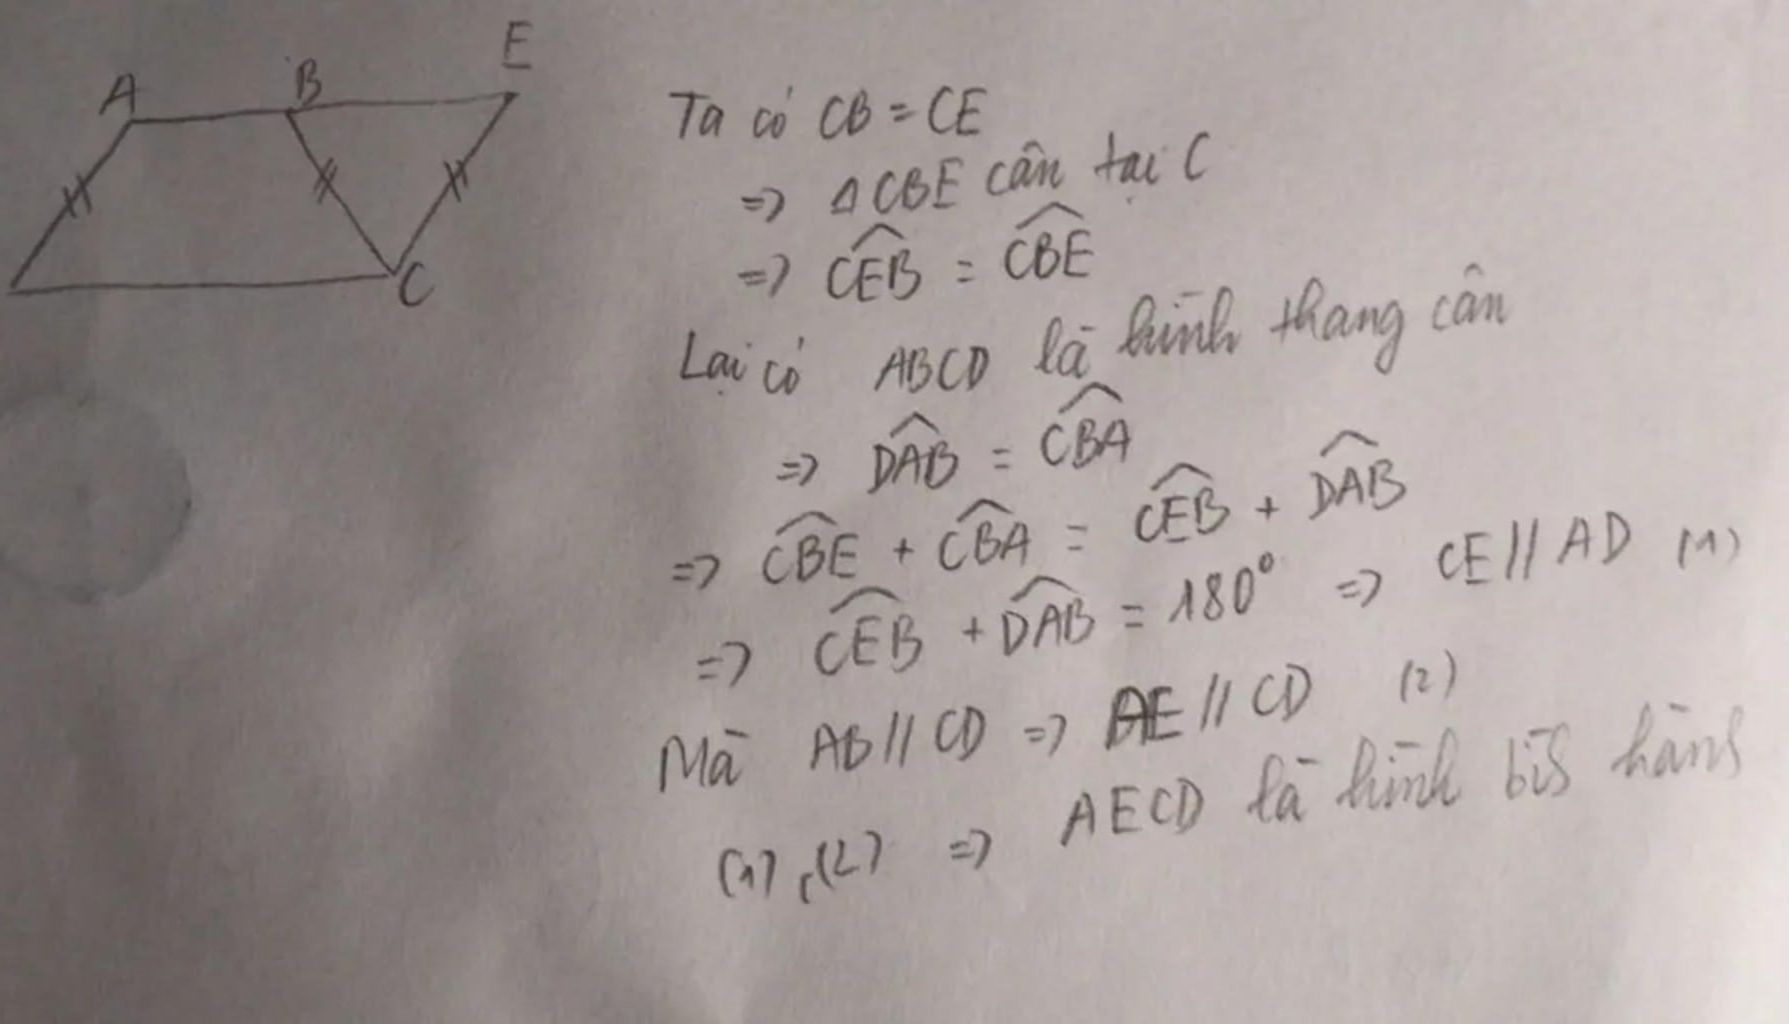 A B E
C
Ta có CB = CE
=> ΔCBE cân tại C
=> \widehat{CEB} = \widehat{CBE}
Lại có ABCD là hình thang cân
=> \widehat{DAB} = \widehat{CBA}
=> \widehat{CBE} + \widehat{CBA} = \widehat{CEB} + \widehat{DAB}
=> \widehat{CEB} + \widehat{DAB} = 180° => CE // AD (1)
Mà AB // CD => AE // CD (2)
(1), (2) => AECD là hình hành